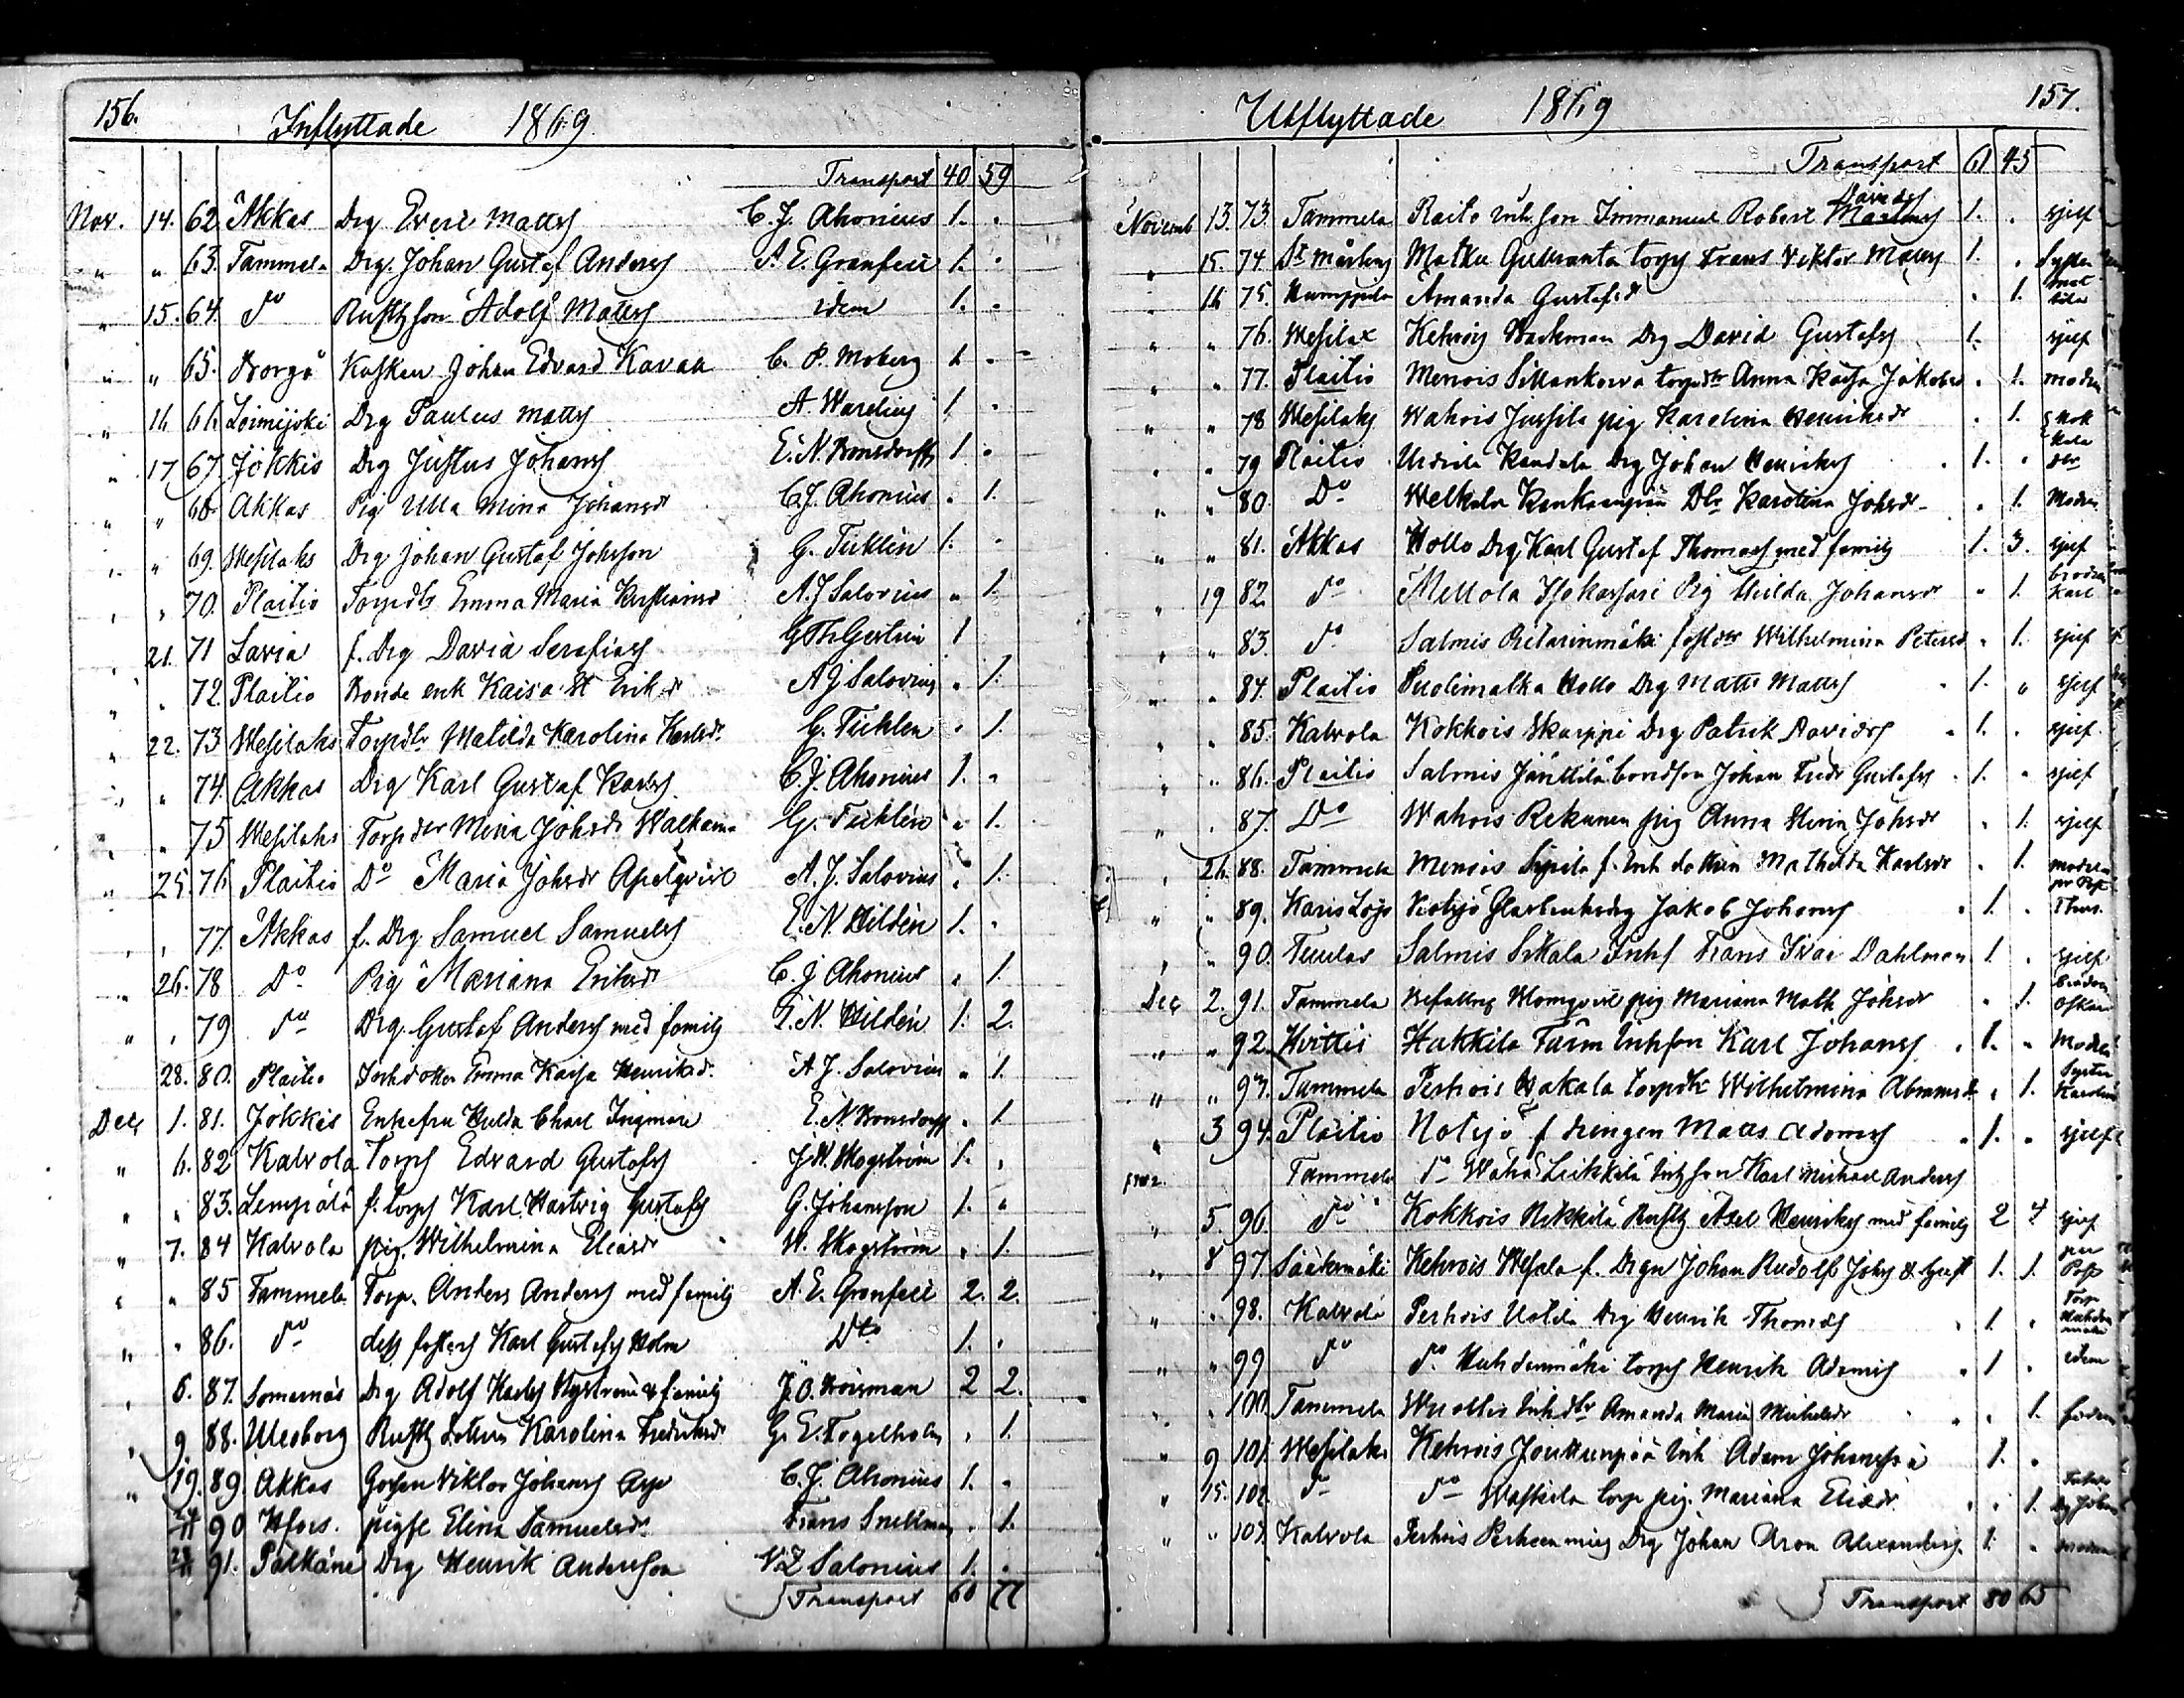 156.
Inflyttade 1869.
Transport 40 59
Nov. 14. 62. Akkas Drg Evert Matts C. J. Ahonius 1. "
" " 63. Tammela Drg. Johan Gustaf Anders A. E. Granfelt 1. "
" 15. 64. do Rusth son Adolf Matts idem 1. "
" " 65. Borgå Kusken Johan Edvard Kavan C. P. Moberg 1 "
" 16 66. Loimijoki Drg Paulus Matts A. Warelius 1 "
" 17 67. Jokkis Drg Justus Johans E. N. Bonsdorff 1 "
" " 68. Akkas Pig Ulla Mina Johansdr C. J. Ahonius " 1.
" " 69. Wesilaks Drg Johan Gustaf Johsson G. Ticklén 1. "
" " 70. Ylaitio Torpdtr Emma Maria A. J. Salovius " 1.
" 21. 71 Lavia f. Drg David Serafias 1
" " 72. Ylaitio Bonde enk Kaisa St Eriksdr A J Salovius " 1.
" 22. 73 Wesilaks Torpdtr Matilda Karolina Karlsdr. G. Ticklén " 1.
" " 74. Akkas Drg Karl Gustaf Karls C. J. Ahonius 1. "
" " 75 Wesilaks Torpdtr Mina Johsdr G. Ticklén " 1.
" 25. 76 Ylaitio Do Maria Johsdr Apelqvist A. J. Salovius " 1.
" " 77. Akkas f. Drg Samuel Samuels E. N. Hildén 1. "
" 26. 78 Do Pig Mariana Eriksdr C. J Ahonius " 1.
" " 79 do Drg. Gustaf Anders med familj E. N. Hildén 1. 2.
28. 80. Ylaitio Inhdotter Emma Kaisa Henriksdr. A J. Salovius " 1.
Dec. 1. 81. Jokkis Enkefru Hulda Charl Ingman E. N. Bonsdorff " 1
" 6. 82 Kalvola Torps Edvard Gustafs J. W. Skogström 1. "
" " 83. Lempälä f. torps Karl Hartvig Gustafs G. Johansson 1. "
" 7. 84 Kalvola pig. Wilhelmina Eliasdr W. Skogström " 1.
" " 85 Tammela Torp. Anders Anders med familj A. E. Granfelt 2. 2.
" " 86. do dess fosters Karl Gustafs Holm Dto 1. "
" 8. 87. Somernäs Drg Adolf Karls Nyström & familj J. O. Hoisman 2 2.
" 9 88. Uleoborg Rusth dottren Karolina Fredriksdr G. E. Fogelholm " 1.
" 19. 89. Akkas Gossen Viktor Johans C. J. Ahonius 1. "
90 Hfors. pigfl Elina Samuelsdr Frans Snellman " 1.
91. Pälkäne Drg Henrik Andersson Salonius 1. "
Transport 60 77
157.
Utflyttade 1869
Transport 61 45
Novemb 13. 73. Tammela Raito Inh. son Immanuel Robert Davids 1. " sjelf
" 15. 74. St Mårtens Matku torps Frans Viktor Matts 1. "
" 16 75. Humppila Amanda Gustafsdr " 1.
" " 76. Wesilax Kehrois Drg David Gustafs 1. sjelf
" " 77. Ylaitio Menois torpdtr Anna Kaisa Jakobsdr " 1. modren
" " 78 Wesilaks Wahois Jussila pig Karolina Henriksdr " 1.
" " 79 Ylaitio Urdiala Kandala Drg Johan Henriks 1. "
" " 80. Do Dtr Karolina Johsdr " 1. Modren
" " 81. Akkas Hollo Drg Karl Gustaf Thomas med familj 1. 3. sjelf
" 19 82. do Mellola Pig Hilda Johansdr " 1. brodren Karl
" " 83. do Salmis fostdtr Wilhelmina Petersdr " 1. sjelf
" " 84. Ylaitio Puolimatka Hollo Drg Matts Matts 1. " sjelf
" " 85. Kalvola Kokkois Skarppi Drg Patrik Davids 1. " sjelf
" " 86. Ylaitio Salmis Jänttilä bondson Johan Fredr Gustafs 1. " sjelf
" " 87. Do Wahois Rekunen pig Anna Stina Johsdr " 1. sjelf
" 26. 88. Tammela Menois Sipila f. Inh dottren Mathilda Karlsdr " 1. modren
" " 89. Karis Lojo Notsjö Glasbruksdrg Jakob Johans 1. "
" " 90. Teusler Salmis Sikala Inhs Frans Ivar Dahlman 1. " sjelf
Dec 2. 91. Tammela pig Mariana Math Johsdr " 1. Brodren Oskar
" " 92 Hvittis Hakkila Inhson Karl Johans 1. " Modren
" " 93. Tammela Perhois Hakala torpdtr Wilhelmina " 1. Syster Karolina
" 3 94. Ylaitio Notsjö f drengen Matts Adams 1. " sjelf
Tammela do Waha Leikkilä Inhson Karl Michael Anders
" 5. 96. do Kokkois Nikkilä Rusth Axel Henriks med familj 2 4 sjelf
" 8 97. Sääksmäki Kehrois f. Drgn Johan Rudolf Johs & hust 1. 1.
" " 98. Kalvola Perhois Uotila Drg Henrik Thomas 1. "
" " 99 do do Huhdanmäki torps Henrik Adams 1 " idem
" " 100. Tammela Wuoltis Inhdtr Amanda Maria Mickelsdr " 1.
" 9 101. Wesilaks Kehrois Inh Adam Johansson 1. "
" 15. 102. do do torp pig. Mariana Eliasdr " 1.
" " 103. Kalvola Perhois Drg Johan Aron Alexanders 1. "
Transport 80 65